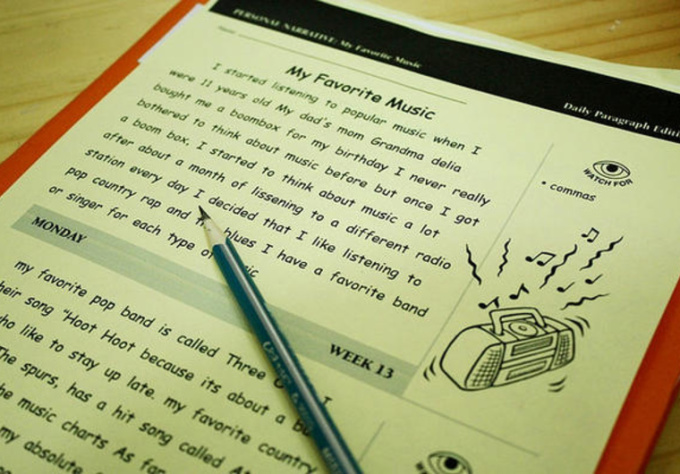 PERSONAL NARRATIVE: My Favorite Music
Daily Paragraph Editi
Name
My Favorite Music
I started listening to popular music when I
were 11 years old My dad's mom Grandma delia
bought me a boombox for my birthday I never really
bothered to think about music before but once I got
a boom box, I started to think about music a lot
after about a month of lissening to a different radio
station every day I decided that I like listening to
pop country rap and blues I have a favorite band
or singer for each type of
WATCH FOR
• commas
MONDAY
WEEK 13
my favorite pop band is called Three
heir song "Hoot Hoot because its about a
ho like to stay up late. my favorite country
The spurs, has a hit song called
the music charts As far
my absolute
WATCH